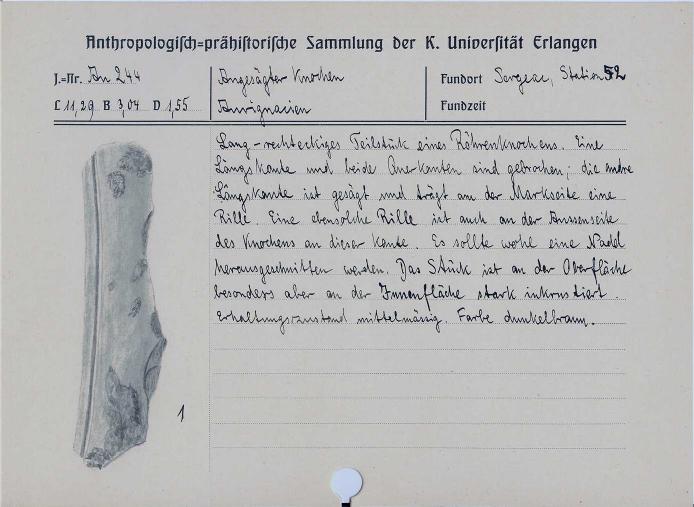 Anthropologisch=prähistorische Sammlung der K. Universität Erlangen
J.=Nr. An 244
Angesägter Knochen
Fundort Sergeac, Station 52
L 11,29 B 3,04 D 1,55
Aurignacien
Fundzeit
Lang-rechteckiges Teilstück eines Röhrenknochens. Eine
Längskante und beide Querkanten sind gebrochen; die andre
Längskante ist gesägt und trägt an der Markseite eine
Rille. Eine ebensolche Rille ist auch an der Aussenseite
des Knochens an dieser Kante. Es sollte wohl eine Nadel
herausgeschnitten werden. Das Stück ist an der Oberfläche
besonders aber an der Innenfläche stark inkrustiert.
Erhaltungszustand mittelmässig. Farbe dunkelbraun.
1